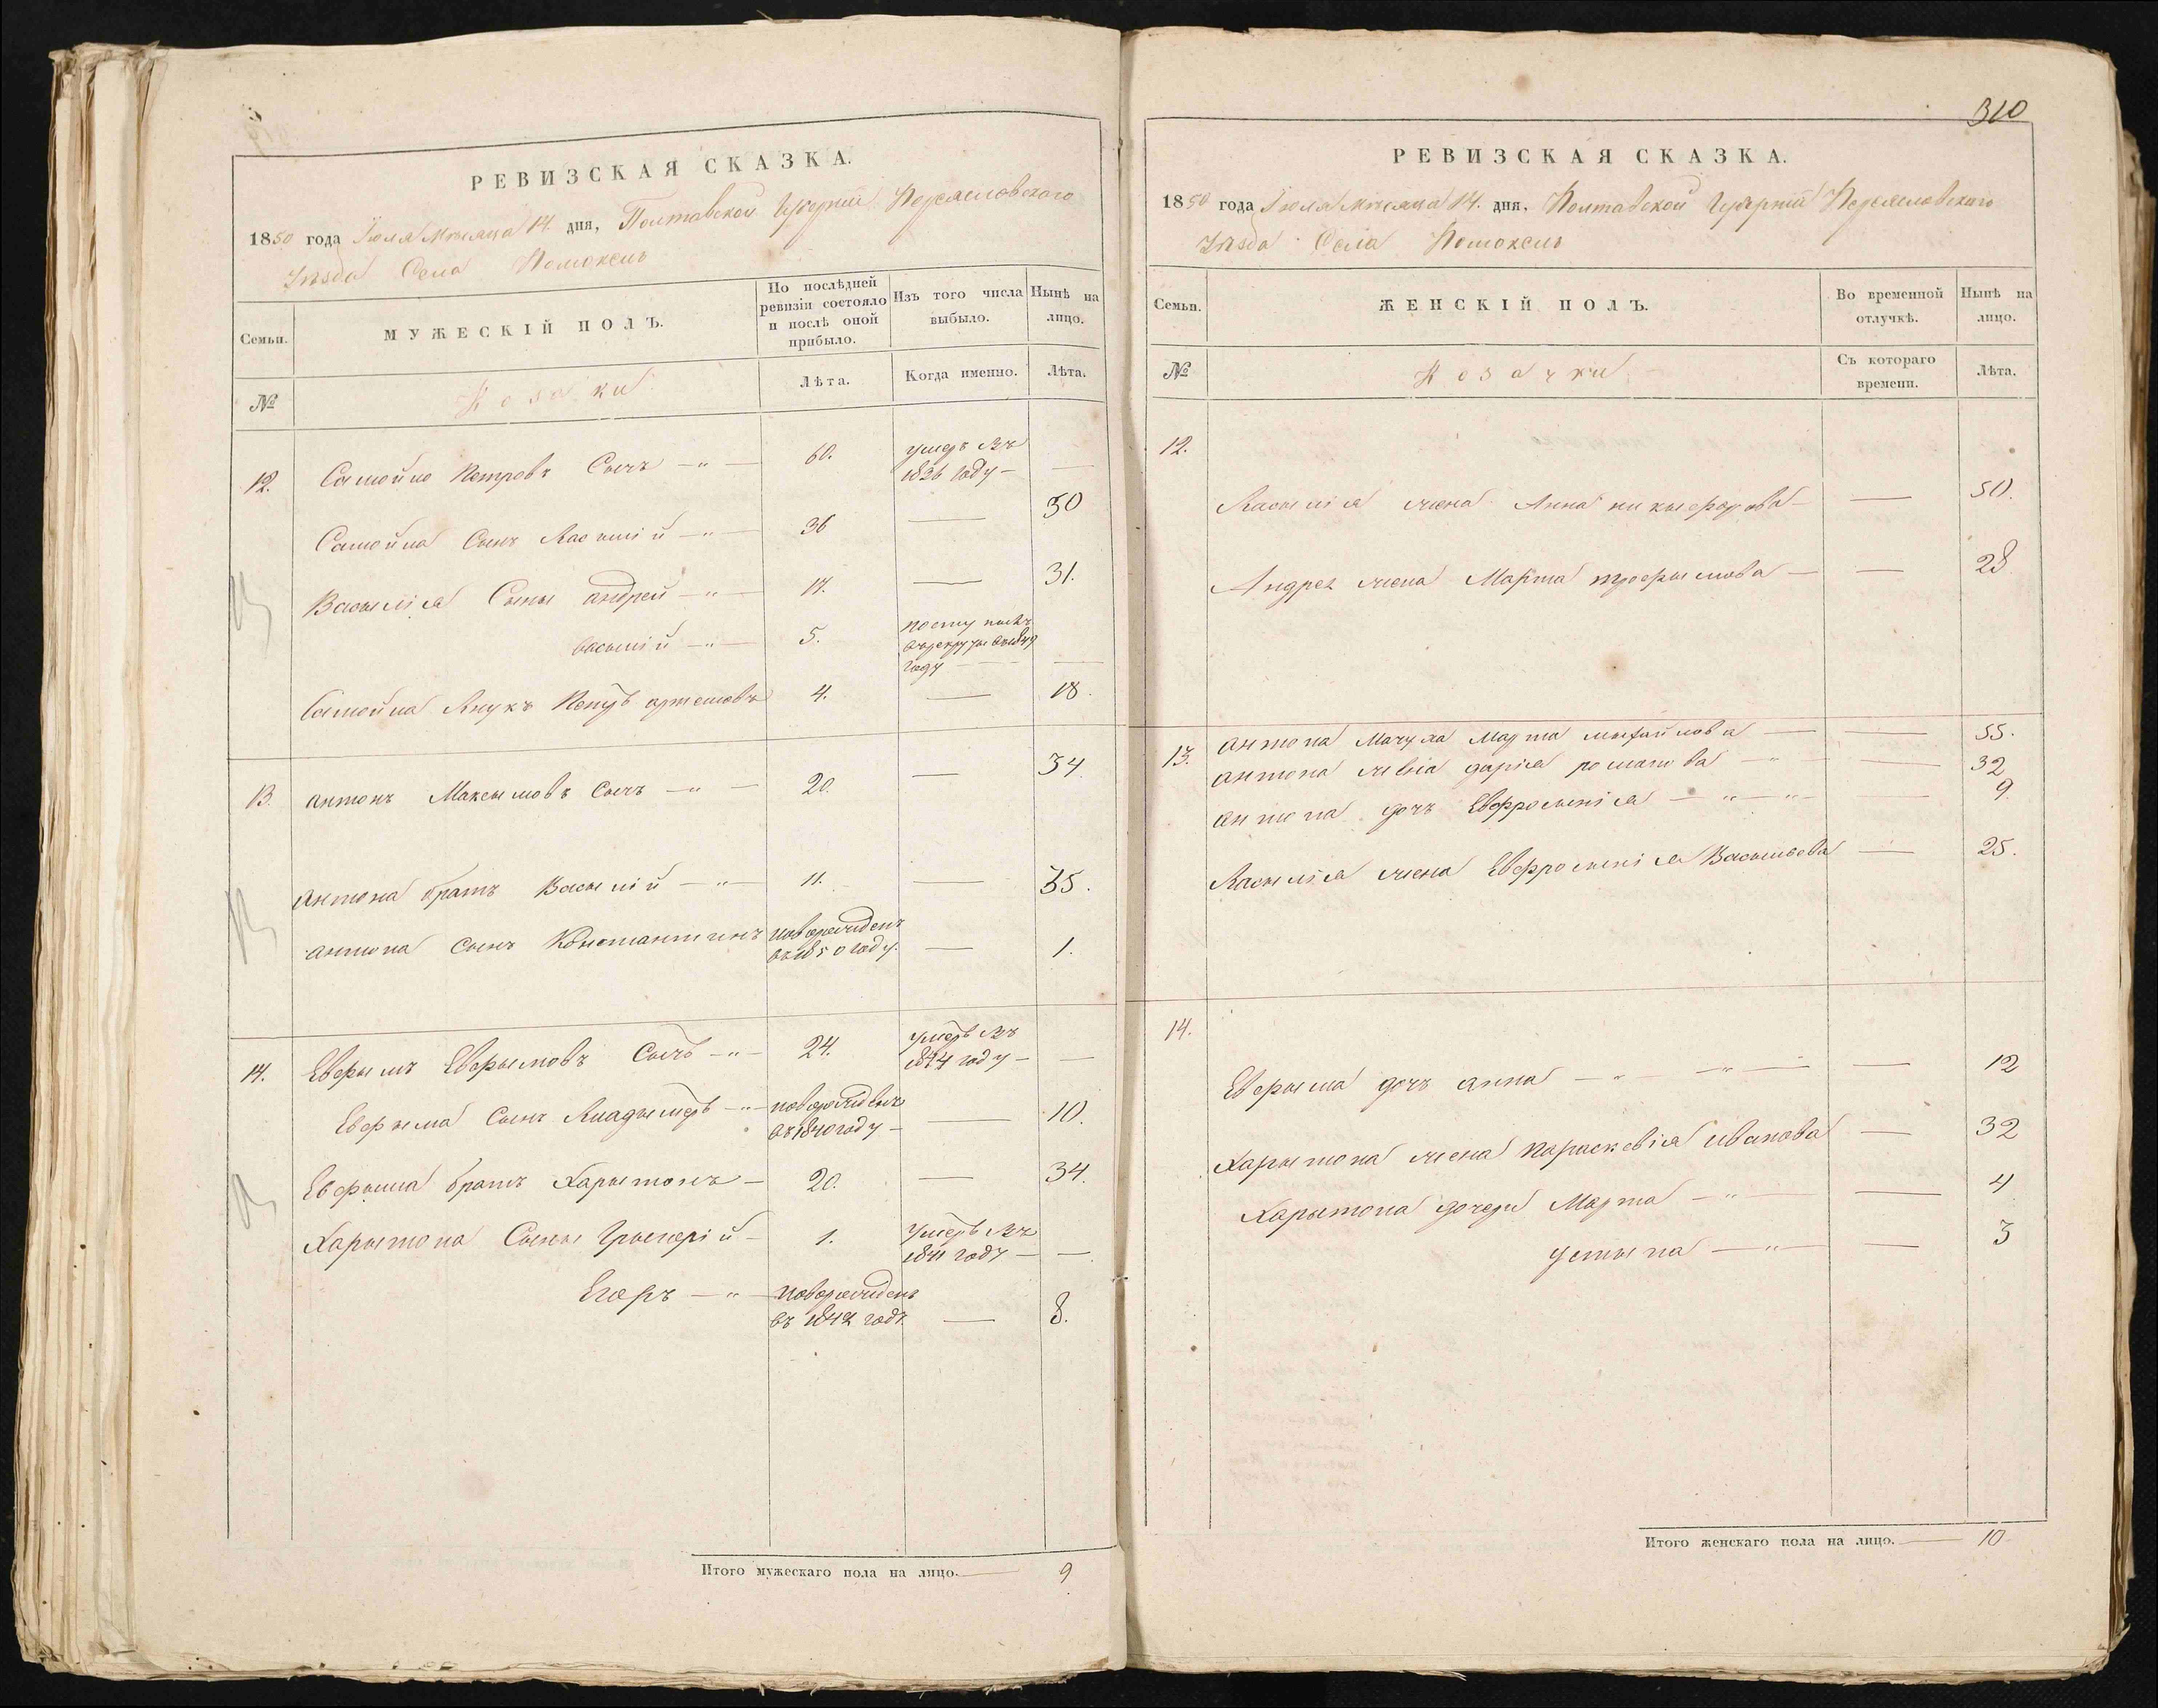 РЕВИЗСКАЯ СКАЗКА.
1850 года Іюля Мѣсяца 14. дня, Полтавской Губерніи Переясловского
Уѣзда Села Помоклъ
Семьи.
МУЖЕСКІЙ ПОЛЪ.
По послѣдней ревизіи состояло и послѣ оной прибыло.
Изъ того числа выбыло.
Нынѣ на лицо.
№
Козаки
Лѣта.
Когда именно.
Лѣта.
12. Самойло Петровъ Сычъ 60. умеръ въ 1836 году —
Самойла Сынъ Васылій 36 — 50
Васылія Сыны андрей 17. — 31.
васылій 5. поступилъ въ рекруты въ 1849 году —
Самойла Внукъ Петръ артемовъ 4. — 18.
13. антонъ Максымовъ Сычъ 20. — 34.
антона братъ Васылій 11. — 35.
антона Сынъ Константинъ новорожденъ въ 1850 году. — 1.
14. Евфымъ Евфымовъ Сычъ 24. умеръ въ 1844 году —
Евфыма Сынъ Владымеръ новорожденъ въ 1840 году — 10.
Евфыма братъ Харытонъ 20. — 34.
Харытона Сыны Грыгорій 1. умеръ въ 1841 году —
Егоръ новорожденъ въ 1842 годъ — 8.
Итого мужескаго пола на лицо. 9
310
РЕВИЗСКАЯ СКАЗКА.
1850 года Іюля Мѣсяца 14. дня, Полтавской Губерніи Переясловского
Уѣзда Села Помоклъ
Семьи.
ЖЕНСКІЙ ПОЛЪ.
Во временной отлучкѣ.
Нынѣ на лицо.
№
Козачки
Съ котораго времени.
Лѣта.
12.
Васылія жена Анна никыфорова — 50.
Андрея жена Марта трофымова — 28
13. антона Мачуха Марта мыхайлова — 55.
антона жена дарія романова — 32
антона дочъ Евфросынія — 9.
Васылія жена Евфросынія Васыльева — 25.
14.
Евфыма дочъ анна — 12
Харытона жена Параскевія иванова — 32
Харытона дочери Марта — 4
устына — 3
Итого женскаго пола на лицо. 10